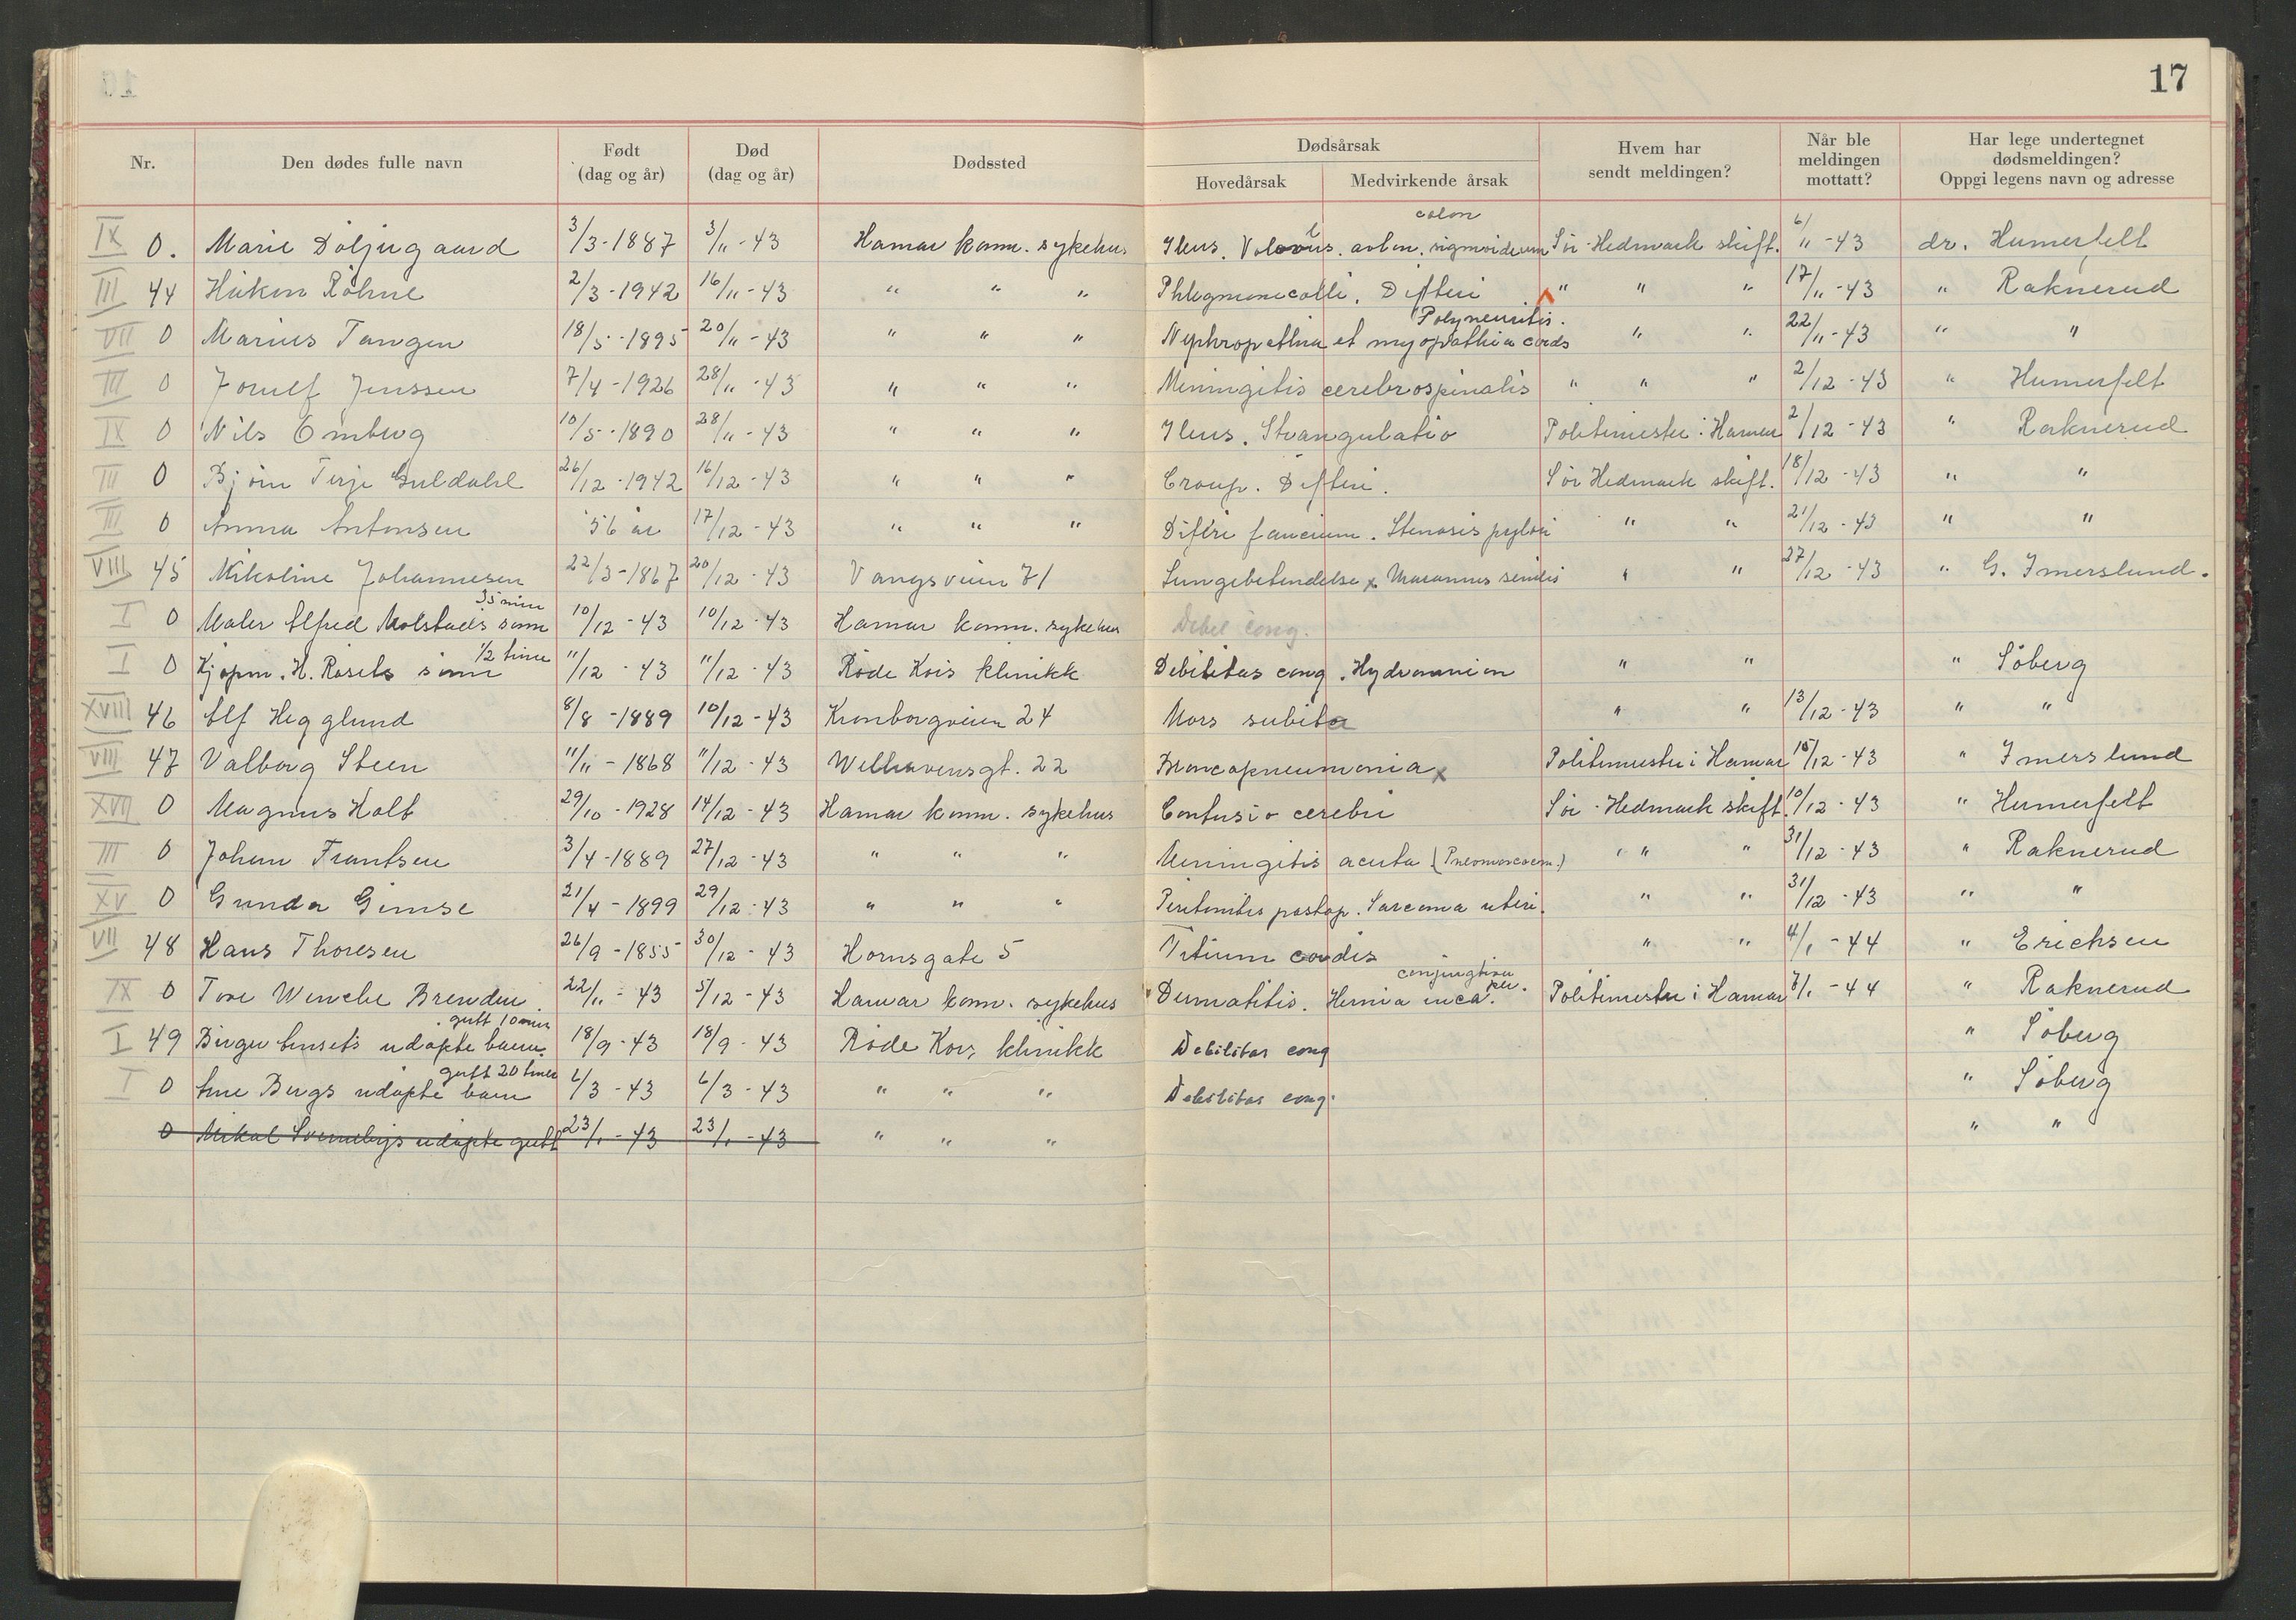 17
Nr. Den dødes fulle navn Født (dag og år) Død (dag og år) Dødssted Dødsårsak Hovedårsak Medvirkende årsak Hvem har sendt meldingen? Når ble meldingen mottatt? Har lege undertegnet dødsmeldingen? Oppgi legens navn og adresse
IX 0. Marie Döljugaard 3/3-1887 3/11-43 Hamar komm. sykehus Ileus. Volvulus. colon sigmoideum Sør-Hedmark skift. 6/11-43 dr. Humerfelt
III 44 Håkon Røhne 2/3-1942 16/11-43 " " " Phlegmone colli. Difteri " " " 17/11-43 " Raknerud
VII 0 Marius Tangen 18/5-1895 20/11-43 " " " Nephropathia et myopathia cordis Polyneuritis. " " 22/11-43 " "
III 0 Jorulf Jenssen 7/4-1926 28/11-43 " " " Meningitis cerebrospinalis " " " 2/12-43 " Humerfelt
IX 0 Nils Omberg 10/5-1890 28/11-43 " " " Ileus. Strangulatio Politimester i Hamar 2/12-43 " Raknerud
III 0 Bjørn Terje Guldahl 26/12-1942 16/12-43 " " " Croup. Difteri. Sør Hedmark skift. 18/12-43 " "
III 0 Anna Antonsen 56 år 17/12-43 " " " Difteri faucium. Stenosis pylori " " 21/12-43 " "
VIII 45 Nikoline Johannesen 22/3-1867 20/12-43 Vangsveien 71 Lungebetendelse x Marasmus senilis " " 27/12-43 " G. Imerslund.
I 0 Maler Alfred Molstads sønn 35 min 10/12-43 10/12-43 Hamar komm. sykehus Debil cong.
I 0 Kjøpm. H. Rosets sønn 1/2 time 11/12-43 11/12-43 Røde Kors klinikk Debilitas cong. Hydramnion " " " Söberg
XVIII 46 Alf Hegglund 8/8-1889 10/12-43 Kronborgveien 24 Mors subita " " 13/12-43 " "
VIII 47 Valborg Steen 11/11-1868 11/12-43 Welhavensgt. 22 Broncopneumonia x Politimester i Hamar 15/12-43 " Imerslund
XVII 0 Magnus Holt 29/10-1928 14/12-43 Hamar komm. sykehus Contusio cerebri Sør-Hedmark skift. 10/12-43 " Humerfelt
III 0 Johan Frantsen 3/4-1889 27/12-43 " " " Meningitis acuta (Pneumococc.) " " " 31/12-43 " Raknerud
XV 0 Gunda Gimse 21/4-1899 29/12-43 " " " Peritonitis postop. Sarcoma uteri. " " 31/12-43 " "
VII 48 Hans Thoresen 26/9-1855 30/12-43 Hornsgate 5 Vitium cordis " " 4/1-44 " Erichsen
IX 0 Tove Wenche Brenden 22/11-43 5/12-43 Hamar komm. sykehus Dermatitis. Hernia inca. Politimester i Hamar 7/1-44 " Raknerud
I 49 Birger Aensets udøpte barn. gutt 10 min 18/9-43 18/9-43 Røde Kors klinikk Debilitas cong " Söberg
I 0 Arne Bergs udøpte barn gutt 20 timer 6/3-43 6/3-43 " " " Debilitas cong. " Söberg
0 Mikal udøpte gutt 23/1-43 23/1-43 " " " " "